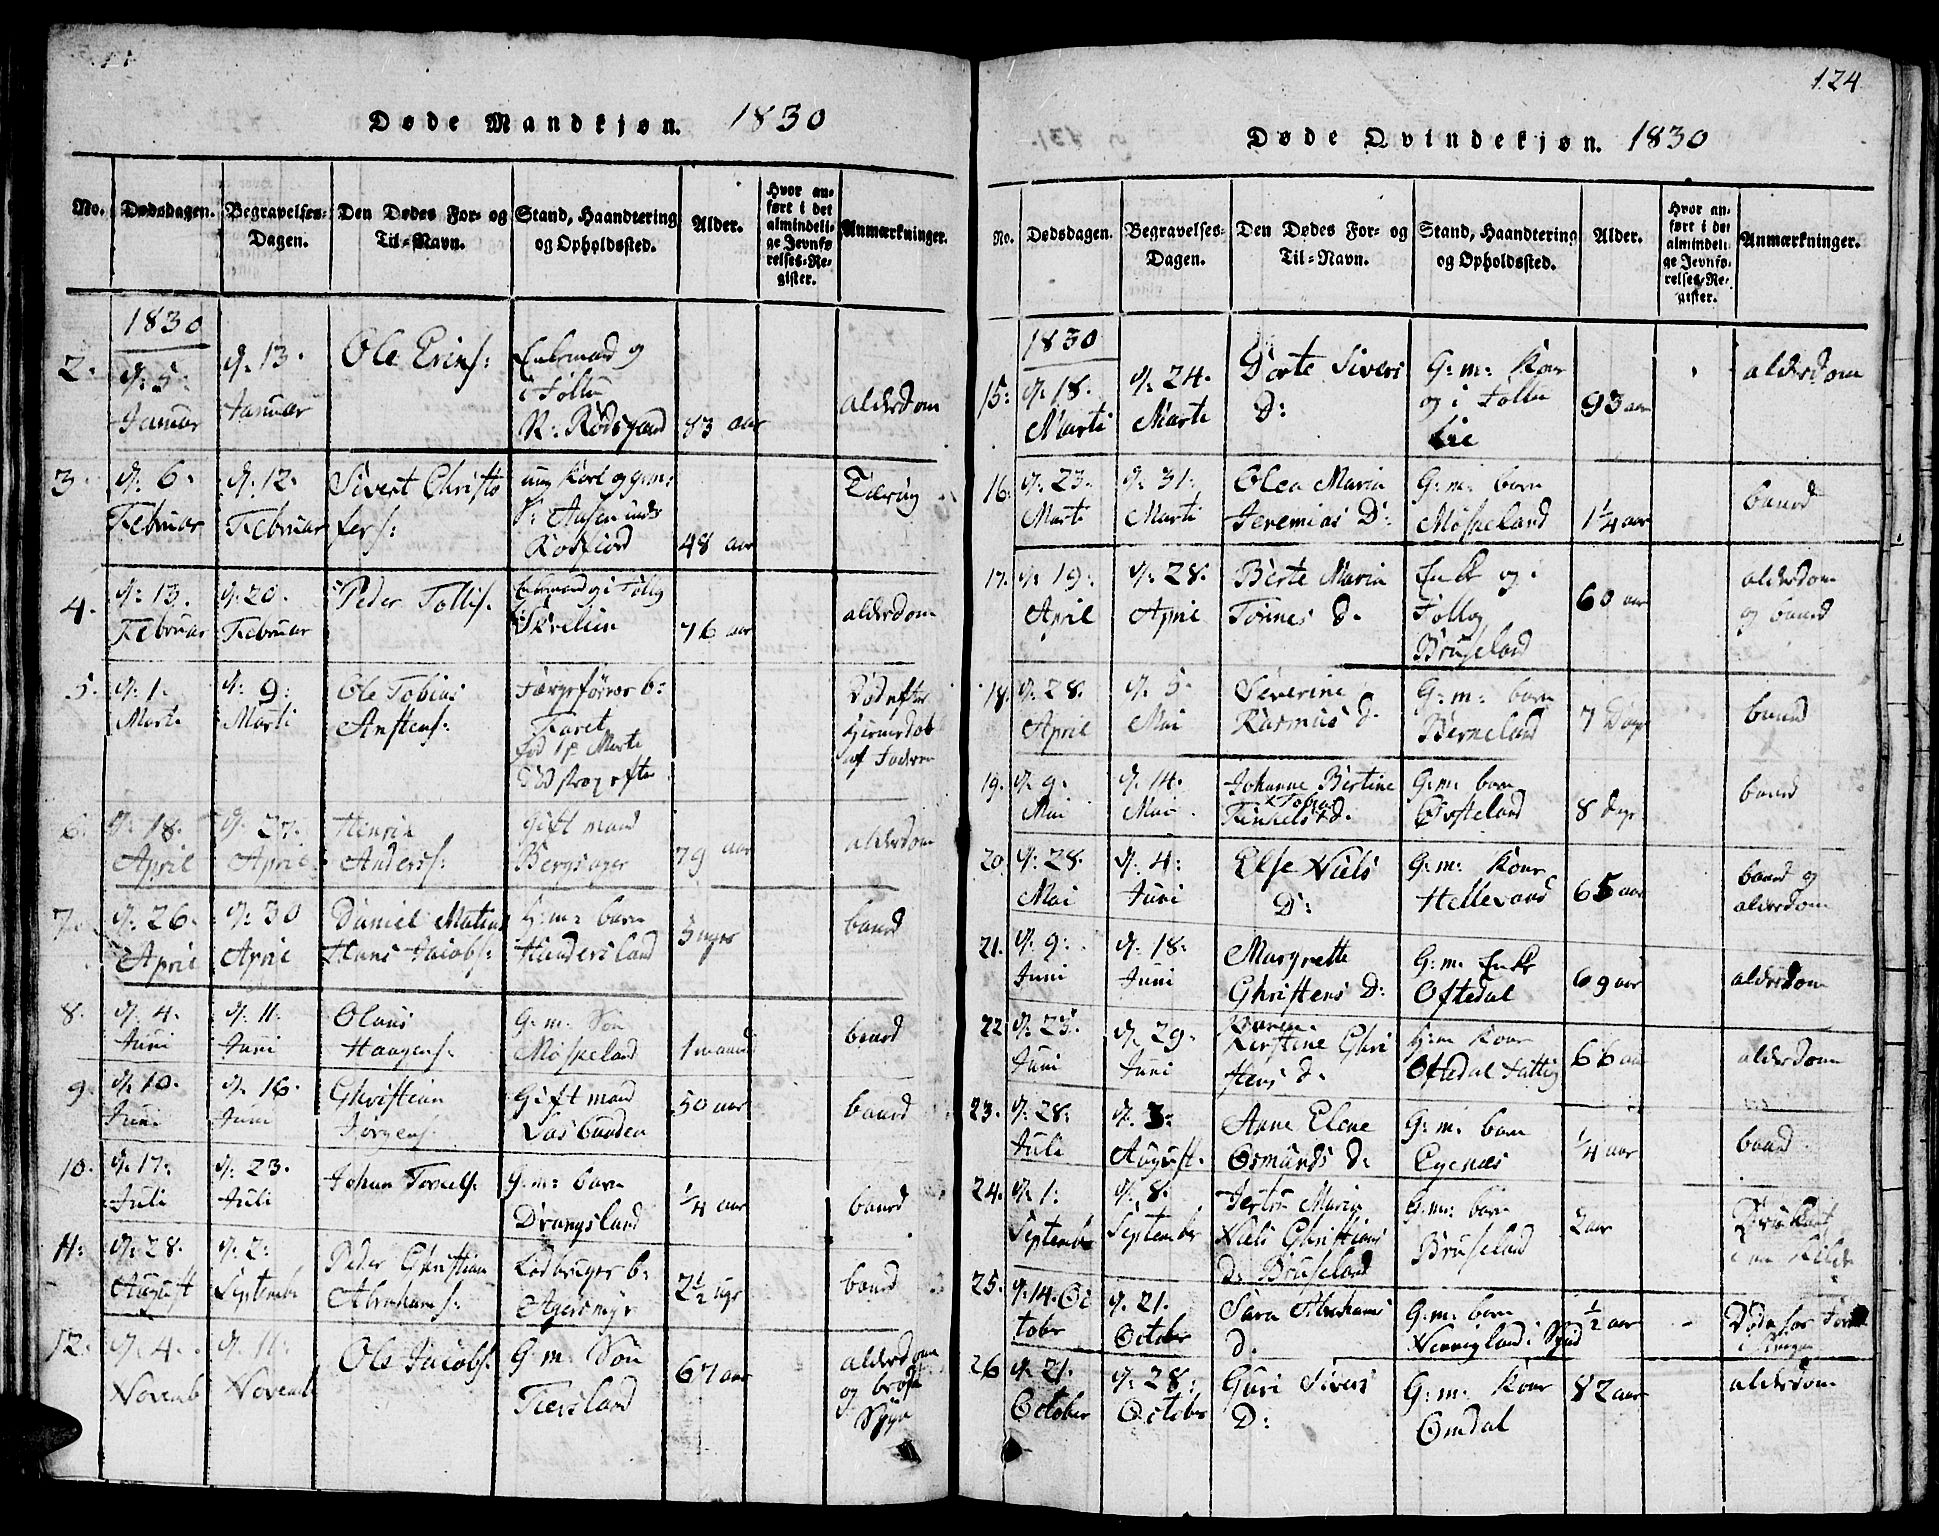 124
Døde Mandkjøn. 1830
No.
Dødsdagen.
Begravelses-
Dagen.
Den Dødes For- og
Til-Navn.
Stand, Haandtering
og Opholdssted.
Alder.
Hvor an-
ført i det
almindeli-
ge Jevnfø
relses-Re-
gister.
Anmærkninger.
1830
2.
d. 5
Januar
d. 13.
Januar
Ole Erics:
Enkemand og
i
83 aar
alderdom
3.
d. 6.
Februar
d. 12.
Februar
Sivert Christo
fers:
ung Karl og
48 aar
Tæring
4.
d. 13.
Februar
d. 20.
Februar
Peder
76 aar
alderdom
5.
d. 1.
Marti
d. 9:
Marti
Ole Tobias
Anstens:
Marti
Død efter
af
6.
d. 18.
April
d. 27.
April
Henrik
Anderss:
Gift mand
Bergsager
79 aar
alderdom
7.
d. 26.
April
d. 30
April
Daniel
Hans Jacobs:
barn
Haandersland
5 uger
baard
8.
d. 4.
Juni
d. 11:
Juni
Olaus
Haagens:
G. m: Søn
Møskeland
1 maaned
baard
9.
d. 10.
Juni
d. 16.
Juni
Christian
Jørgens:
Gift mand
50 aar
baard
10.
d. 17:
Juli
d. 23.
Juli
Johan
G: m: barn
Drangsland
1/4 aar
baard
11:
d. 28.
August
d. 2:
Septembr
Peder Christian
Abrahams:
b:
Agersmyr
2 1/2 uger
baard
12.
d. 4.
Novemb
d. 11:
Novemb
Ole Jacobs:
G: m: Søn
67 aar
alderdom
og bryst
Syge
Døde Qvindekjøn. 1830
No.
Dødsdagen.
Begravelses-
Dagen.
Den Dødes For- og
Til-Navn.
Stand, Haandtering
og Opholdssted.
Alder.
Hvor an-
ført i det
almindeli-
ge Jevnfø-
relses-Re-
gister.
Anmærkninger.
1830
15:
d. 18.
Marti
d. 24.
Marti
Dorte Sivers
D:
G: m: Kone
og i
Lie
93 aar
alderdom
16:
d. 23.
Marti
d. 31:
Marti
Olea Maria
Jeremias D:
G: m: barn
Møskeland
1 1/4 aar
baard
17.
d. 19:
April
d. 28.
April
Berte Maria
D.
Enke og
Bruseland
60 aar
alderdom
og baard
18.
d. 28.
April
d. 5.
Mai
Severine
Rasmus D.
G: m: barn
Berneland
7 Dage
baard
19.
d. 9.
Mai
d. 14.
Mai
Johanne Bertine
D.
G: m: barn
8 dage
baard
20
d. 28.
Mai
d. 4:
Juni
Else Niels
D:
G: m: Kone
Hellevand
65 aar
baard og
alderdom
21.
d. 9:
Juni
d. 18.
Juni
Margrette
Christens D:
G: m: Enke
Oftedal
69 aar
alderdom
22
d. 23.
Juni
d. 29.
Juni
Karen
Kirstine Chri
stens D.
Kone
Oftedal Fattig
66 aar
alderdom
23.
d. 28:
Juli
d. 3:
August.
Anne Elene
Osmunds D:
G: m: barn
Egenæs
1/4 aar
baard
24.
d. 1:
Septembr
d. 8.
Septembr
Maria
Niels Christians
D: Bruseland
G: m: barn
Bruseland
2 aar
Druknet
i en Kilde
25.
d. 14. Oc
tobr
d. 21.
Octobr
Sara Abrahams
D.
G: m: barn
1/2 aar
26
d. 21.
Octobr
d. 28:
Octobr
Guri Sivers
D:
G: m: Kone
Omdal
82 aar
alderdom